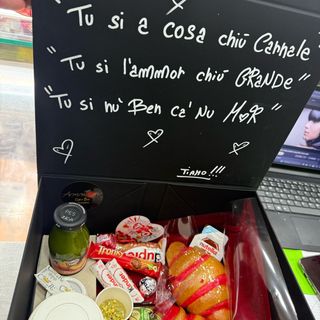 "Tu si a cosa chiú Cannale"
"Tu si l'ammor chiú GRANDe"
"Tu si nu' Ben ca' Nu MoR"
TIAMO!!!
Tronky